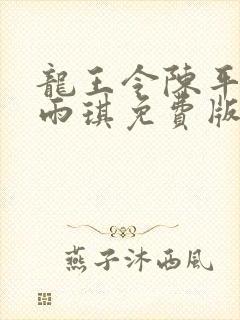 龍王令陳平
雨琪免費版
燕子沐西風